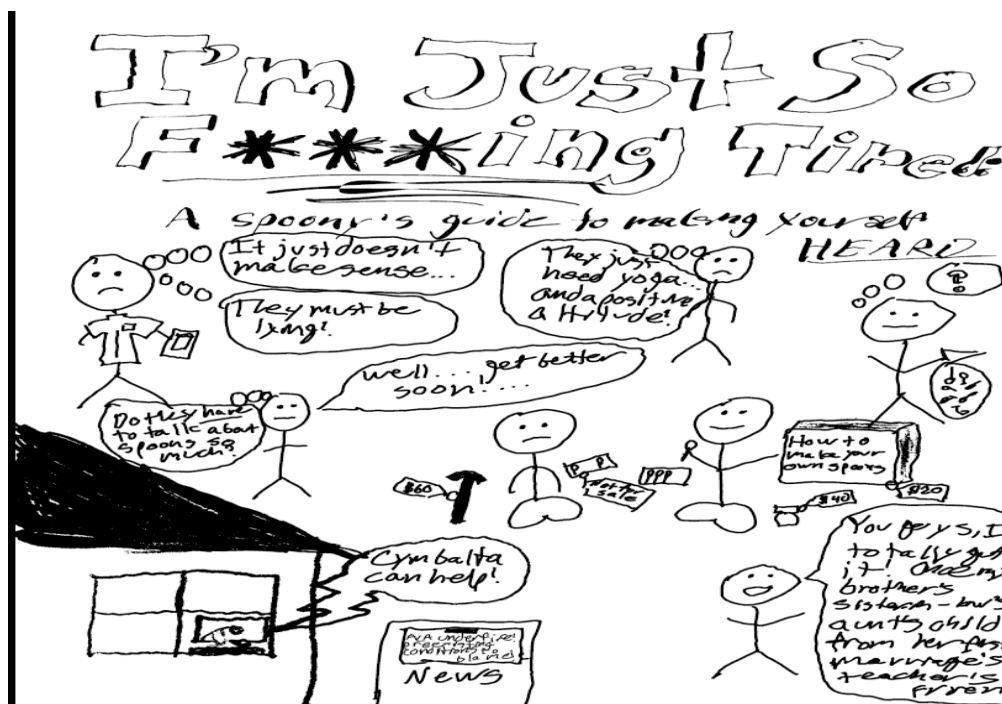 I'm Just So
F***ing Tired:
A spoony's guide to making yourself
HEARD
It just doesn't
make sense...
They must be
lying!
They just
need yoga...
and a positive
attitude!
?!
Well.... get better
soon!....
Do they have
to talk about
spoons so
much?
$60
P P
Not for
sale
PPP
How to
make your
own spoons
$40
$20
Cymbalta
can help!
under fire!
Preexisting
conditions to
blame!
News
You guys, I
totally get
it!
brother's
sister-in-law's
aunt's child
from her first
marriage's
teacher's
frien